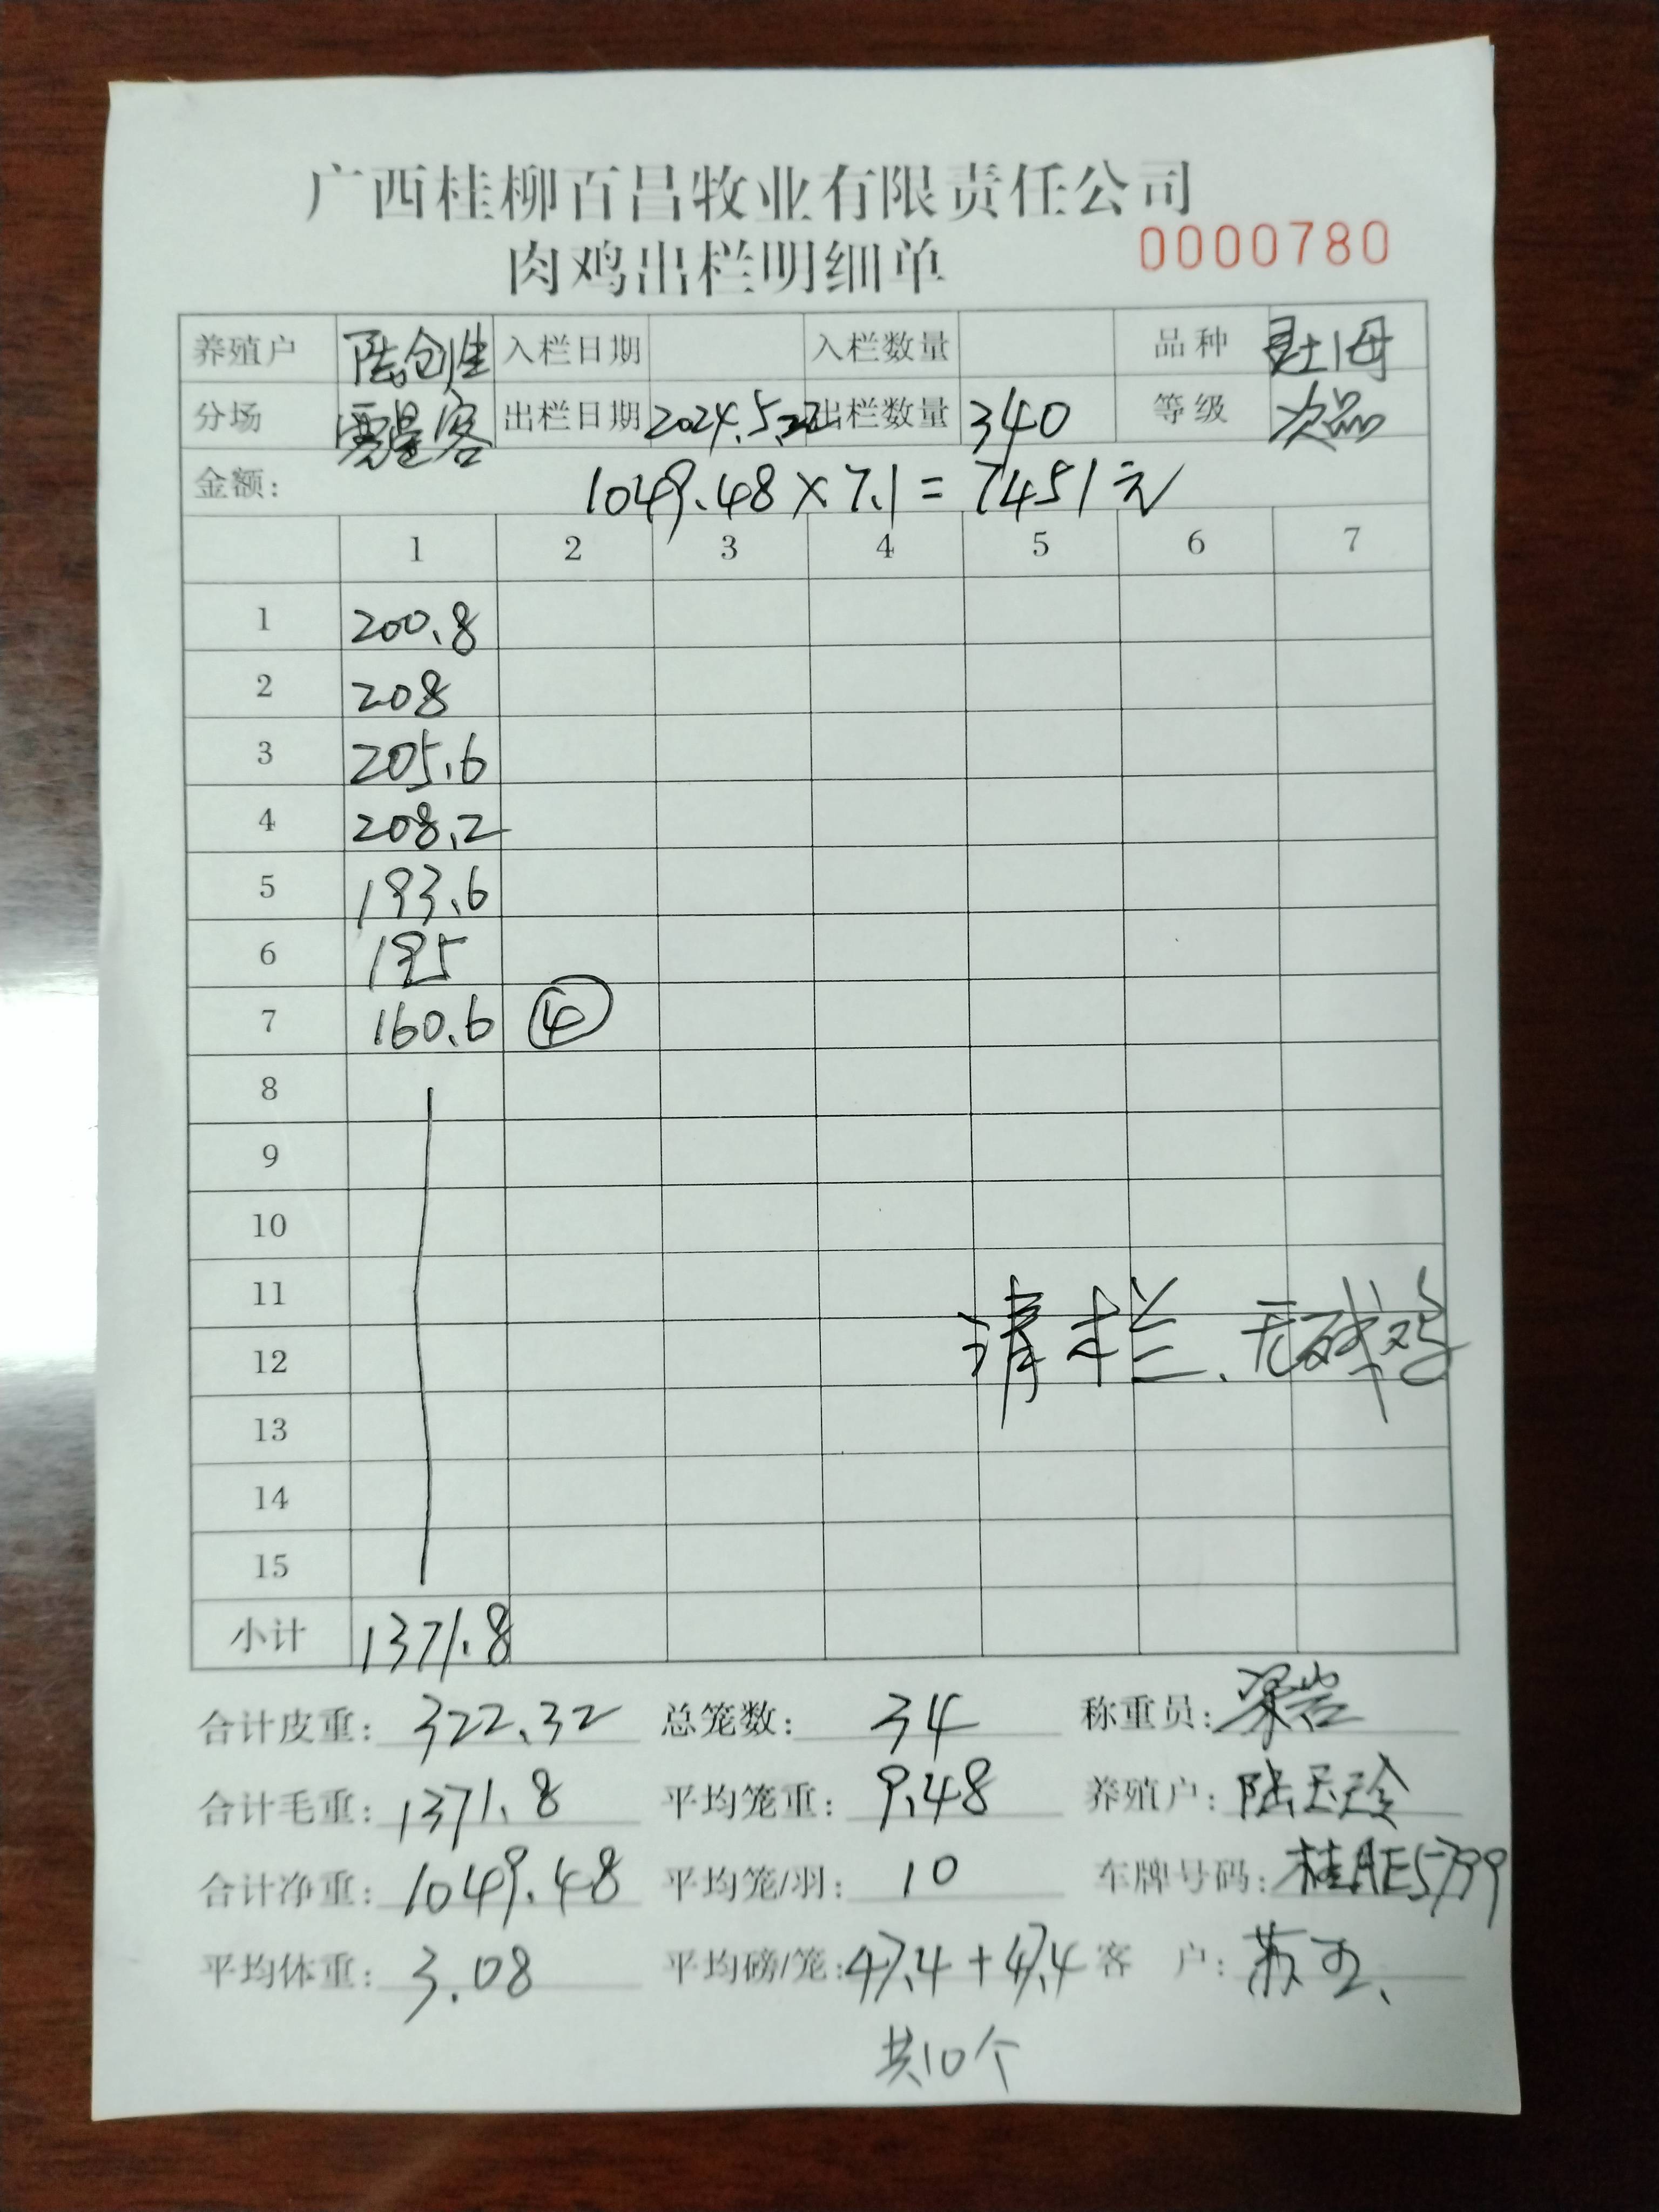 广西桂柳百昌牧业有限责任公司
肉鸡出栏明细单
0000780
养殖户 陆创生 入栏日期 入栏数量 品种 土1母
分场 客 出栏日期 2024.5.22 出栏数量 340 等级 次品
金额: 1049.48×7.1=7451元
1 2 3 4 5 6 7
1 200.8
2 208
3 205.6
4 208.2
5 193.6
6 195
7 160.6 ④
8
9
10
11
12 清栏、无残鸡
13
14
15
小计 1371.8
合计皮重: 322.32 总笼数: 34 称重员: 梁
合计毛重: 1371.8 平均笼重: 9.48 养殖户: 陆玉珍
合计净重: 1049.48 平均笼/羽: 10 车牌号码: 桂AE5799
平均体重: 3.08 平均磅/笼: 47.4+47.4 客 户: 苏
共10个